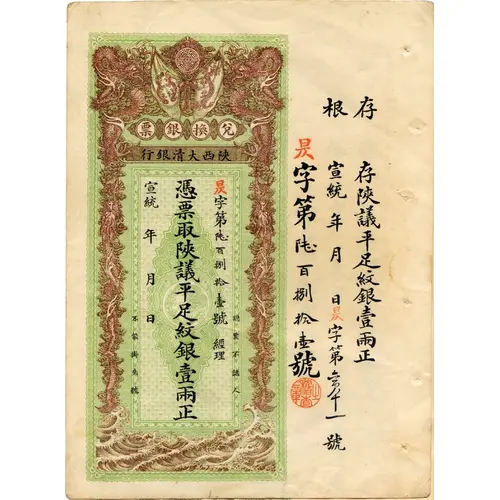 存根
存陝議平足紋銀壹兩正
宣統 年 月 日 昃字第六百八十一號
昃字第陸百捌拾壹號
兌換銀票
陝西大清銀行
認票不認人
昃字第陸百捌拾壹號 經理
憑票取陝議平足紋銀壹兩正
宣統 年 月 日